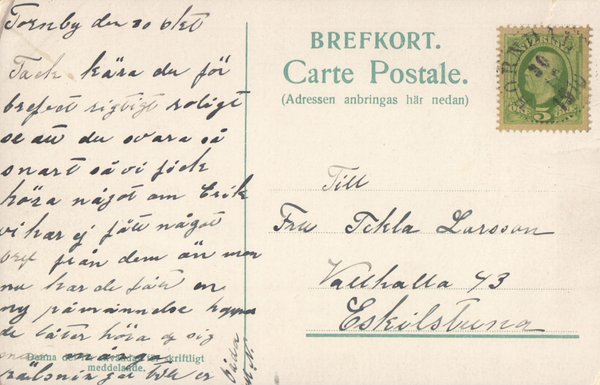 Tornby den 30 okt
Tack kära du för
brefvet rigtigt roligt
se att du svara så
snart så vi fick
höra något om Erik
vi har ej fått något
bref från dem än men
nu har de fått en
ny påminnelse hoppas
de låter höra af sig
Denna del är afsedd för skriftligt
meddelande.
BREFKORT.
Carte Postale.
(Adressen anbringas här nedan)
5
Till
Fru Tekla Larsson
Vallhalla 43
Eskilstuna